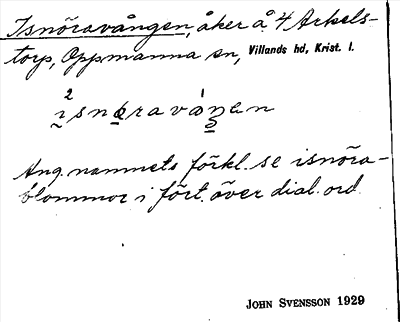 Isnöravången, åker å 4 Arkels-
torp, Oppmanna sn, Villands hd, Krist. l.
Ang. namnets förkl. se isnöra-
blommor i fört. över dial. ord.
JOHN SVENSSON 1929